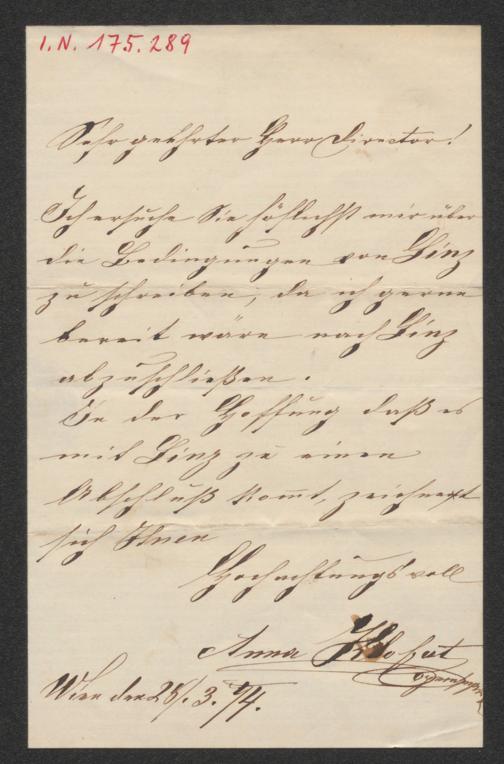 I.N. 175.289
Sehr geehrter Herr Director!
Ich ersuche Sie höflichst mir über
die Bedingungen von Linz
zu schreiben, da ich gerne
bereit wäre nach Linz
abzuschließen.
In der Hoffnung daß es
mit Linz zu einen
Abschluß komt, zeichnet
sich Ihnen
Hochachtungsvoll
Anna
Wien den 28/. 3. 74.